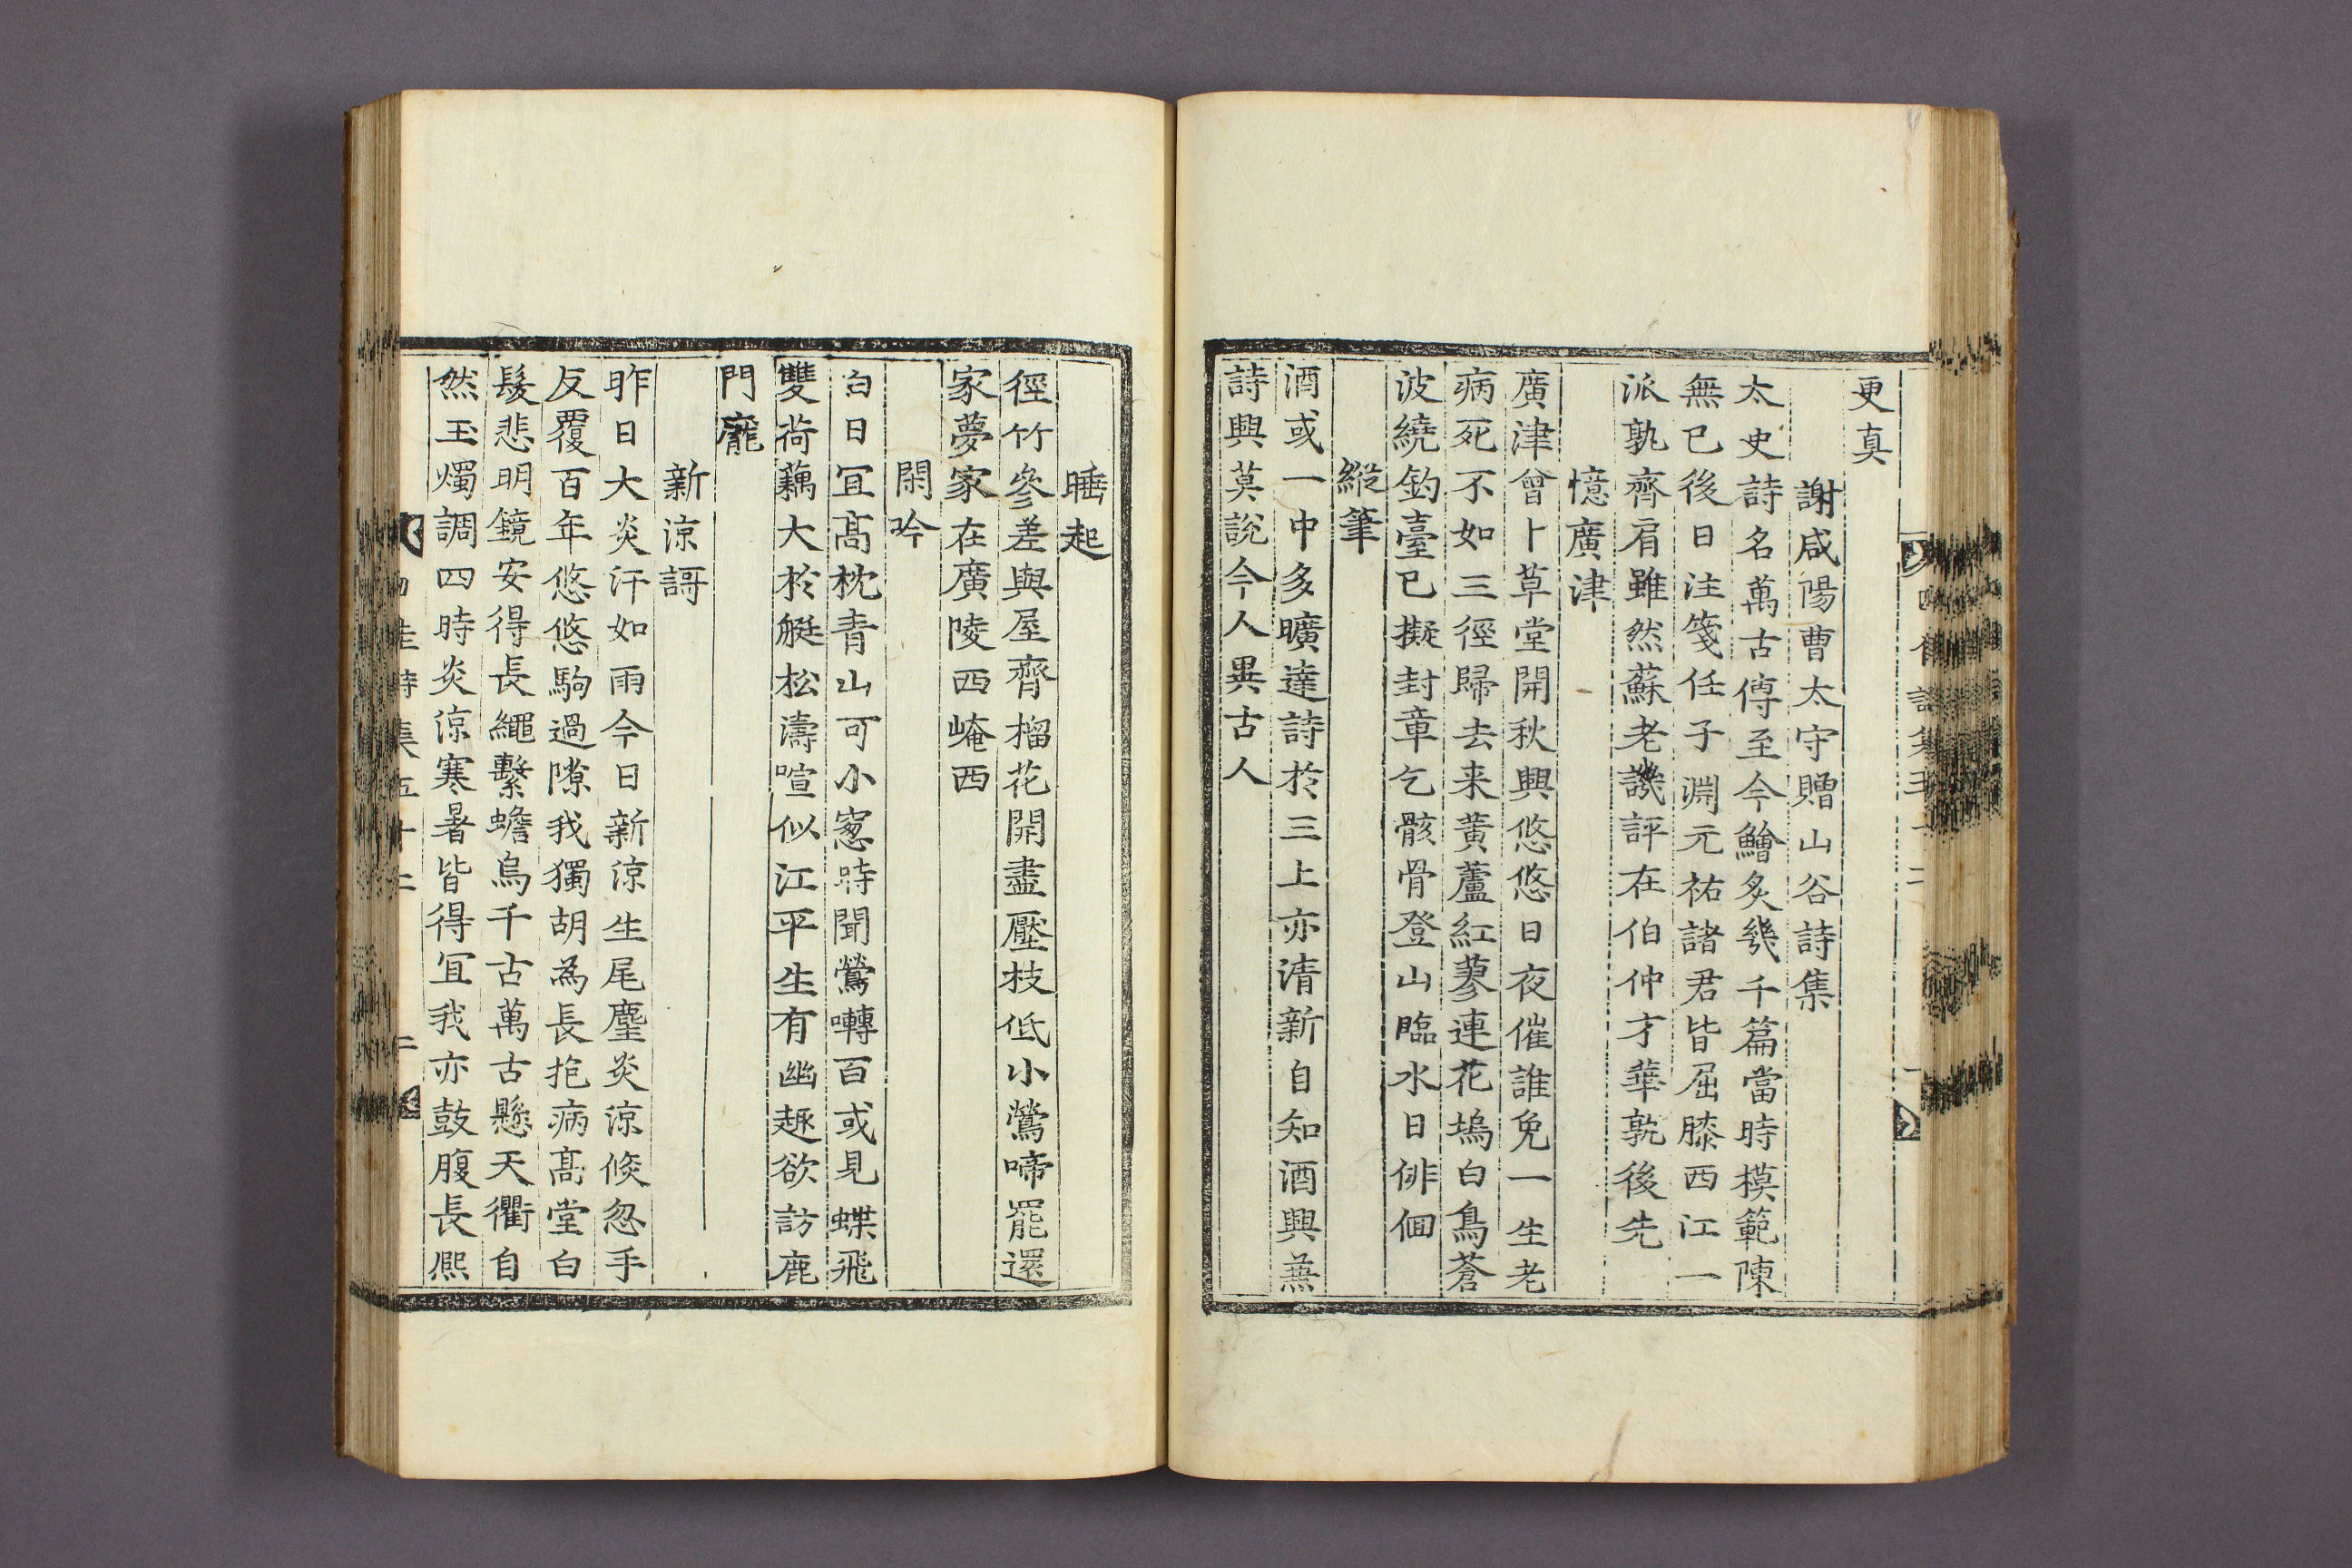 更真
謝咸陽曹太守贈山谷詩集
太史詩名萬古傳至今鱠炙幾千篇當時模範陳
無已後日注箋任子淵元祐諸君皆屈膝西江一
派孰齊肩雖然蘇老譏評在伯仲才華孰後先
憶廣津
廣津曾卜草堂開秋興悠悠日夜催誰免一生老
病死不如三徑歸去来黃蘆紅蓼連花塢白鳥蒼
波繞釣臺已擬封章乞骸骨登山臨水日徘徊
縱筆
酒或一中多曠達詩於三上亦清新自知酒興兼
詩興莫說今人異古人
睡起
徑竹參差與屋齊榴花開盡壓枝低小鶯啼罷還
家夢家在廣陵西崦西
閑吟
白日冝高枕青山可小窓時聞鶯囀百或見蝶飛
雙荷藕大於艇松濤喧似江平生有幽趣欲訪鹿
門龐
新涼謌
昨日大炎汗如雨今日新涼生尾塵炎涼倐忽手
反覆百年悠悠駒過隙我獨胡為長抱病高堂白
髮悲明鏡安得長繩繫蟾烏千古萬古懸天衢自
然玉燭調四時炎涼寒暑皆得冝我亦鼓腹長熈
四佳詩集五十二 二